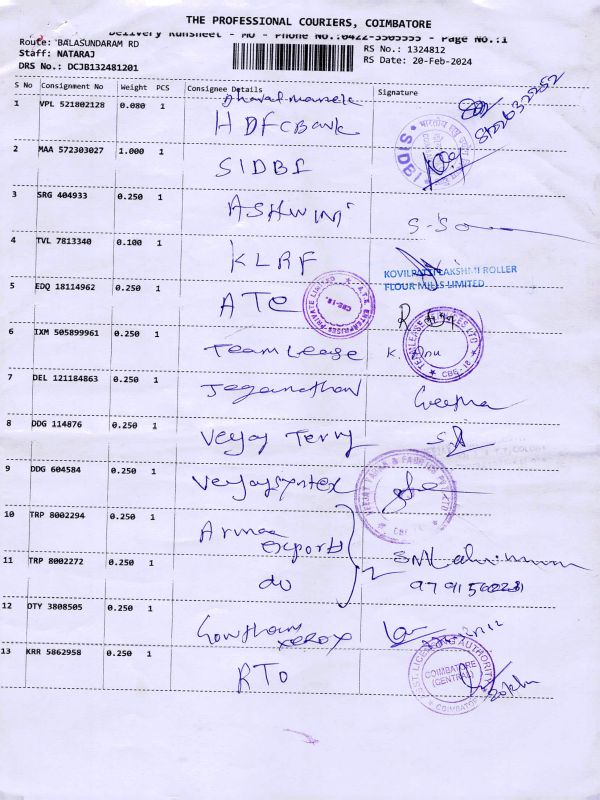 THE PROFESSIONAL COURIERS, COIMBATORE
Delivery Runsheet - MO - Phone No.:0422-3505555 - Page No.:1
Route: BALASUNDARAM RD
Staff: NATARAJ
DRS No.: DCJB132481201
RS No.: 1324812
RS Date: 20-Feb-2024
S No Consignment No Weight PCS Consignee Details Signature
1 VPL 521802128 0.080 1
HDFC Bank
2 MAA 572303027 1.000 1 SIDBI
SIDBI
3 SRG 404933 0.250 1 ASHWINI
4 TVL 7813340 0.100 1 KLRF
KOVILPATTI LAKSHMI ROLLER
FLOUR MILLS LIMITED
5 EDQ 18114962 0.250 1 ATE
A.T.E. ENTERPRISES PRIVATE LIMITED
CBE-18.
6 IXM 505899961 0.250 1 Team Lease K. Anu
CBE-18
7 DEL 121184863 0.250 1 Jaganathan Geetha
8 DDG 114876 0.250 1 Veejay Terry
9 DDG 604584 0.250 1 Veejay syntex
10 TRP 8002294 0.250 1
Export
11 TRP 8002272 0.250 1 do
12 OTY 3808505 0.250 1 Gowtham
xerox
13 KRR 5862958 0.250 1 RTO
COIMBATORE
(CENTRAL)
COIMBATORE